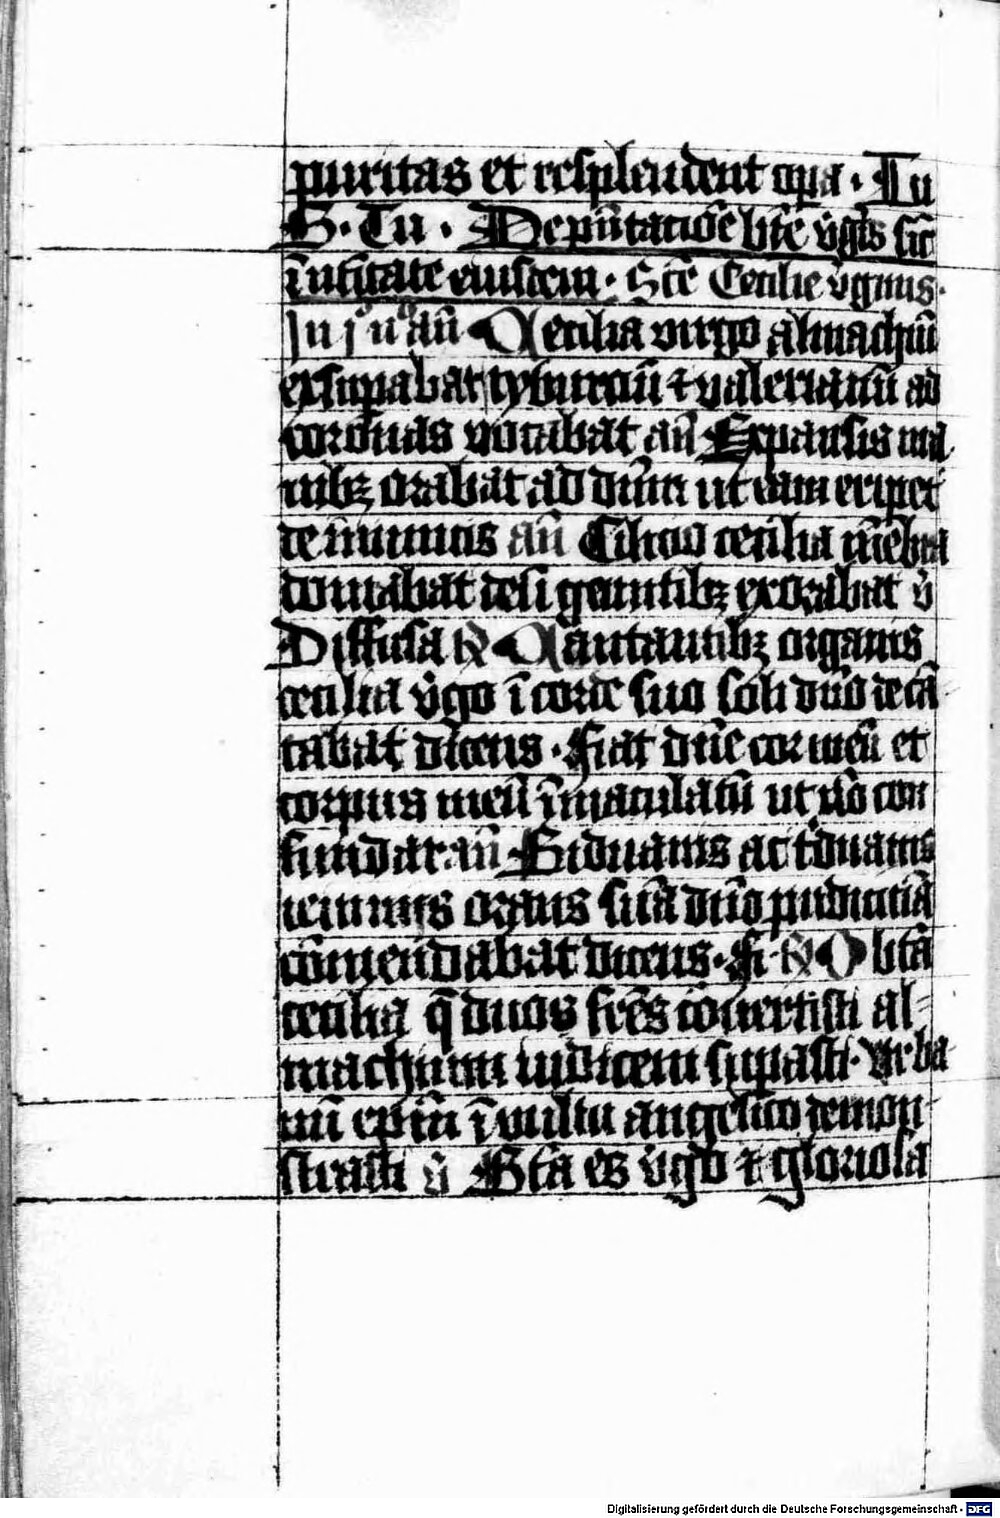 puritas et resplendent opa · Tu
S · Tu · De pñtaciõe bte v̾gis sic̄
ī nr̄itate eiusdem · Scē Cecilie v̾ginis ·
In j° n° an̄ Cecilia virgo almachiū
exsupabat tyburciū ⁊ valerianū ad
coronas vocabat an̄ Expansis ma
nibꝫ orabat ad dūm ut eam eripet
de inimicis an̄ Cilicio cecilia mēbra
domabat deū gemitibꝫ exorabat v̾
Diffusa ꝶ Cantantibꝫ organis
cecilia v̾go ī corde suo soli dn̄o decā
tabat dicens · Fiat dn̄e cor meū et
corpus meū īmaculatū ut nō con
fundar an̄ Biduanis ac tͥduanis
ieiuniis orans suā dn̄o pudicitiā
cōmendabat dicens · Fi · ꝶ O btā
cecilia q̄ duos frēs cōuertisti al-
machium iudicem supasti · vrba
nū epm̄ ī vultu angelico demon-
strasti v̾ Btā es v̾go ⁊ gloriosa
Digitalisierung gefördert durch die Deutsche Forschungsgemeinschaft - DFG